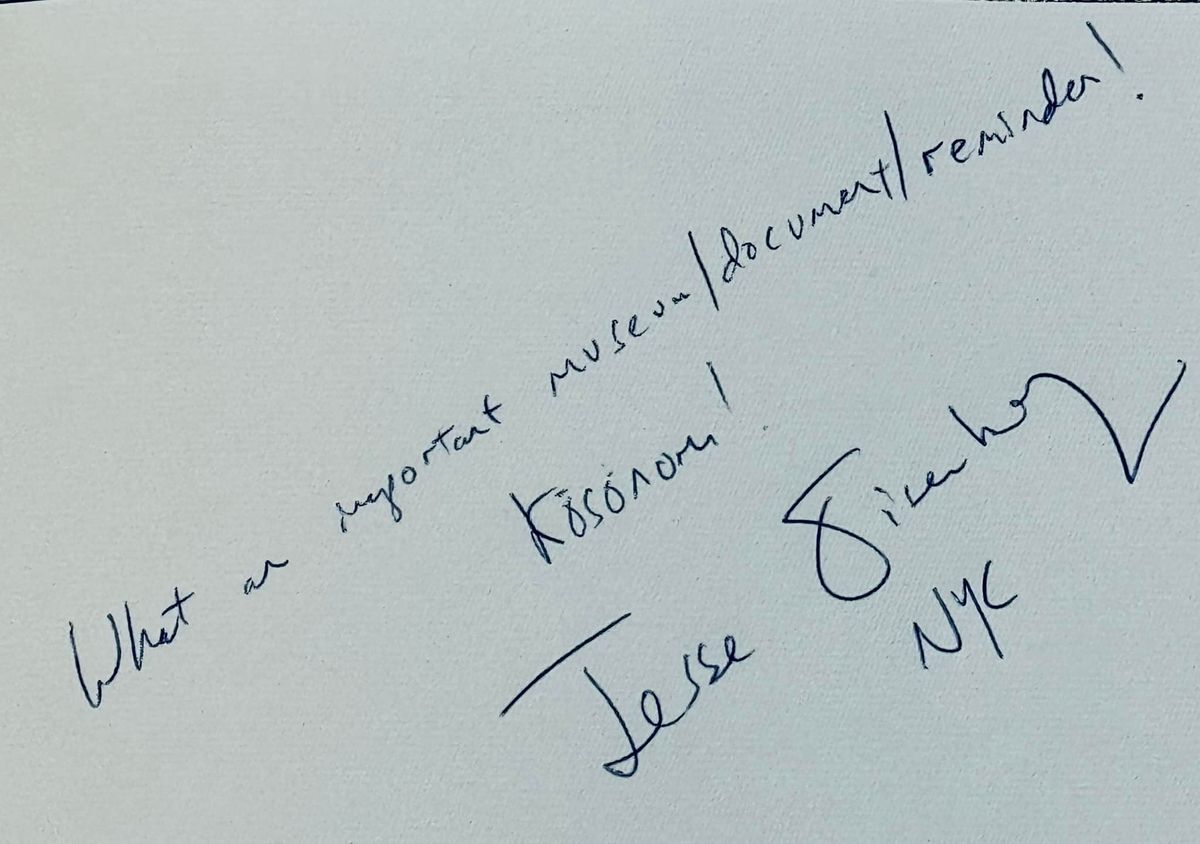 What an important museum/document/reminder!
Kösönöm!
Jesse Eisenberg
NYC